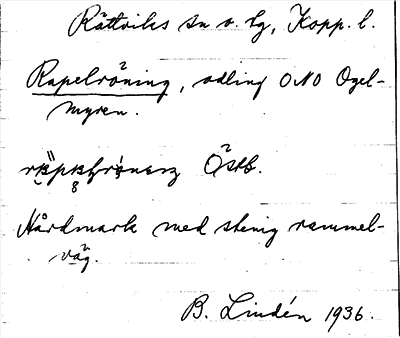 Rättviks sn o. tg, Kopp. l.
Rapelröning, odling ONO Ogel-
myren.
Östb.
Hårdmark med stenig rammel-
väg.
B. Lindén 1936.